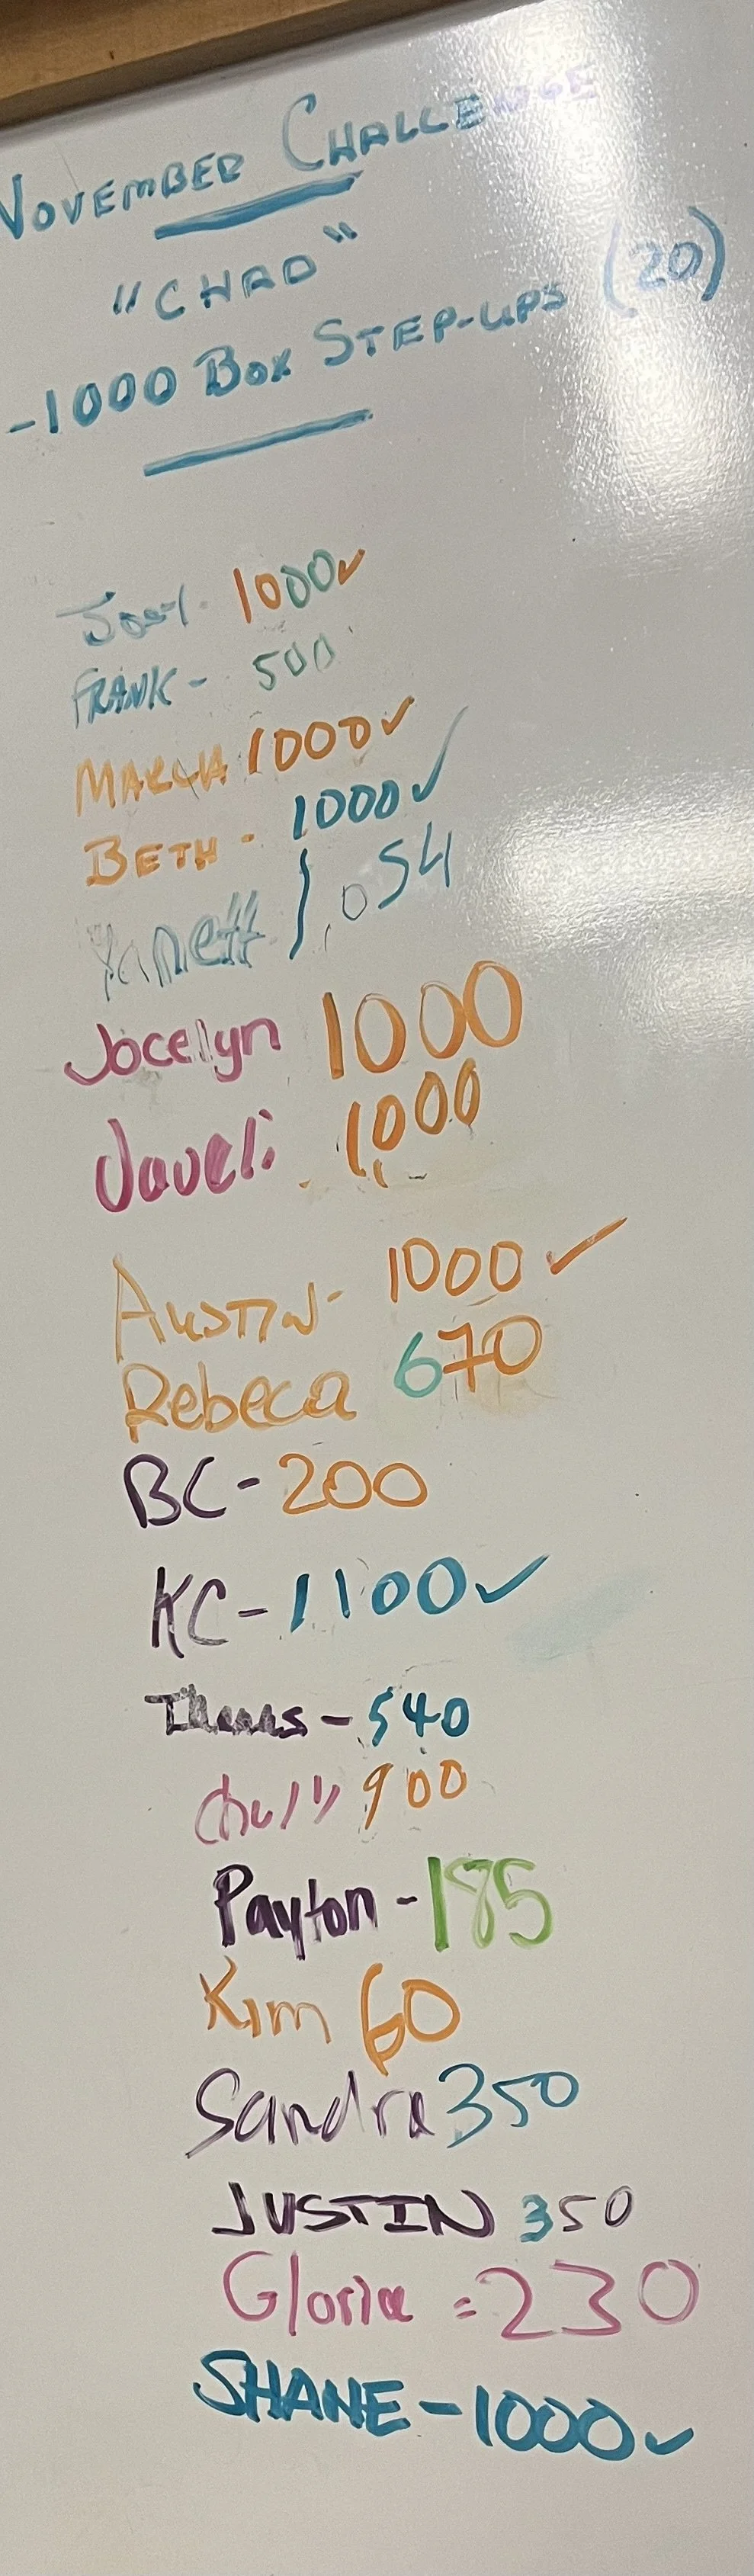 NOVEMBER CHALLENGE
"CHAD"
-1000 BOX STEP-UPS (20)
1000✓
FRANK- 500
1000✓
BETH- 1000✓
Yanett 1,054
Jocelyn 1000
1000
AUSTIN- 1000✓
Rebeca 670
BC-200
KC-1100✓
-540
900
Payton-185
Kim 60
Sandra 350
JUSTIN 350
Gloria =230
SHANE-1000✓